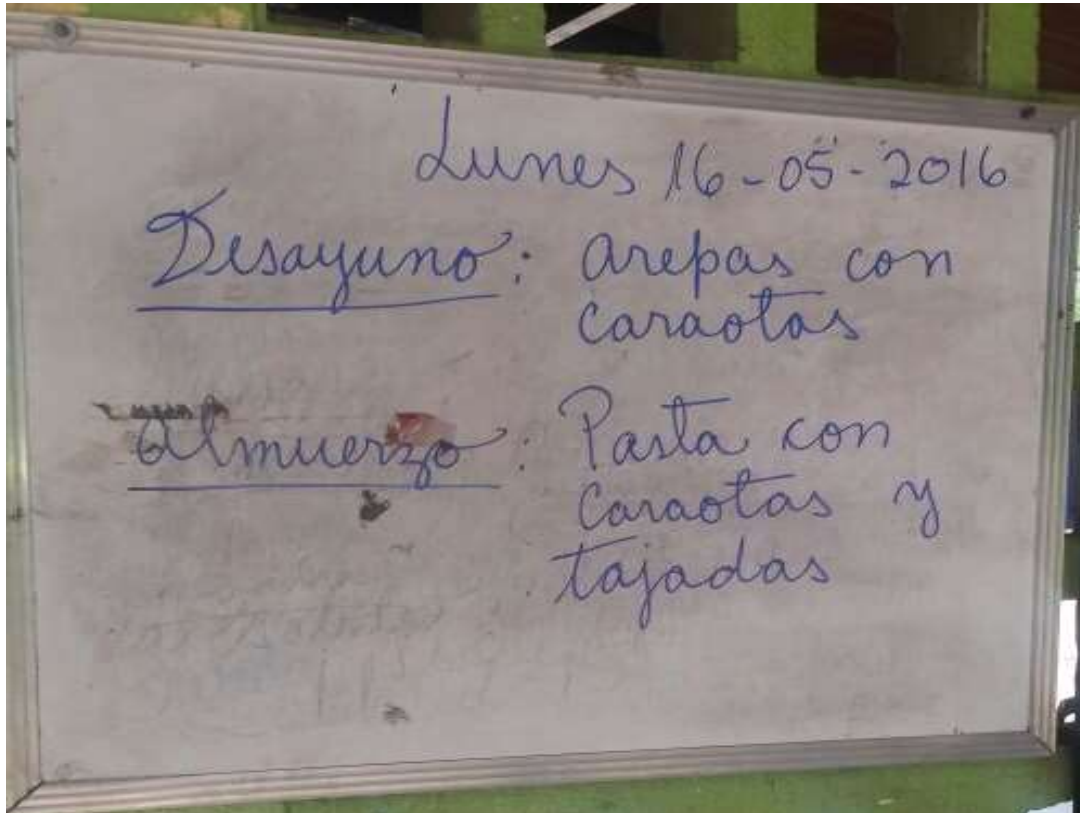 Lunes 16-05-2016
Desayuno: arepas con
caraotas
Almuerzo: Pasta con
caraotas y
tajadas